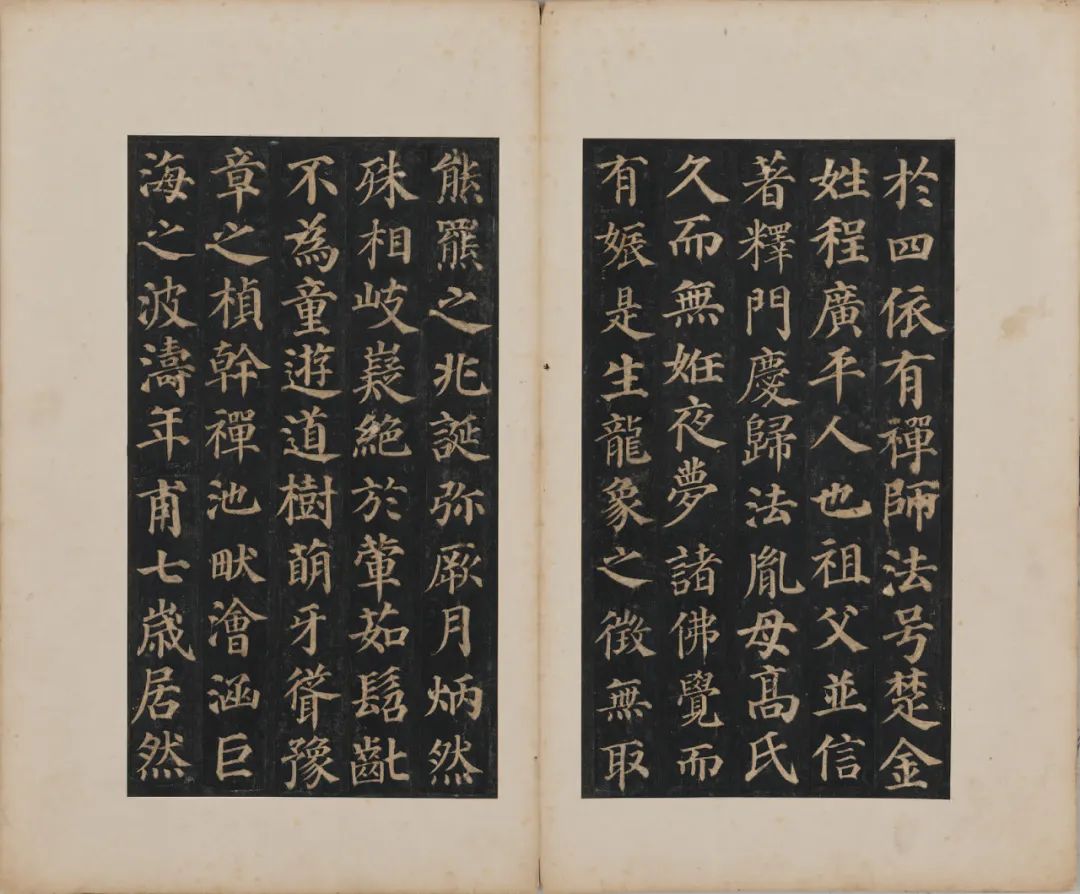 於四依有禪師法号楚金
姓程廣平人也祖父並信
著釋門慶歸法胤母髙氏
久而無妊夜夢諸佛覺而
有娠是生龍象之徵無取
熊羆之兆誕弥厥月炳然
殊相岐嶷絶於葷茹髫齔
不為童遊道樹萌牙聳豫
章之楨幹禪池畎澮涵巨
海之波濤年甫七歳居然